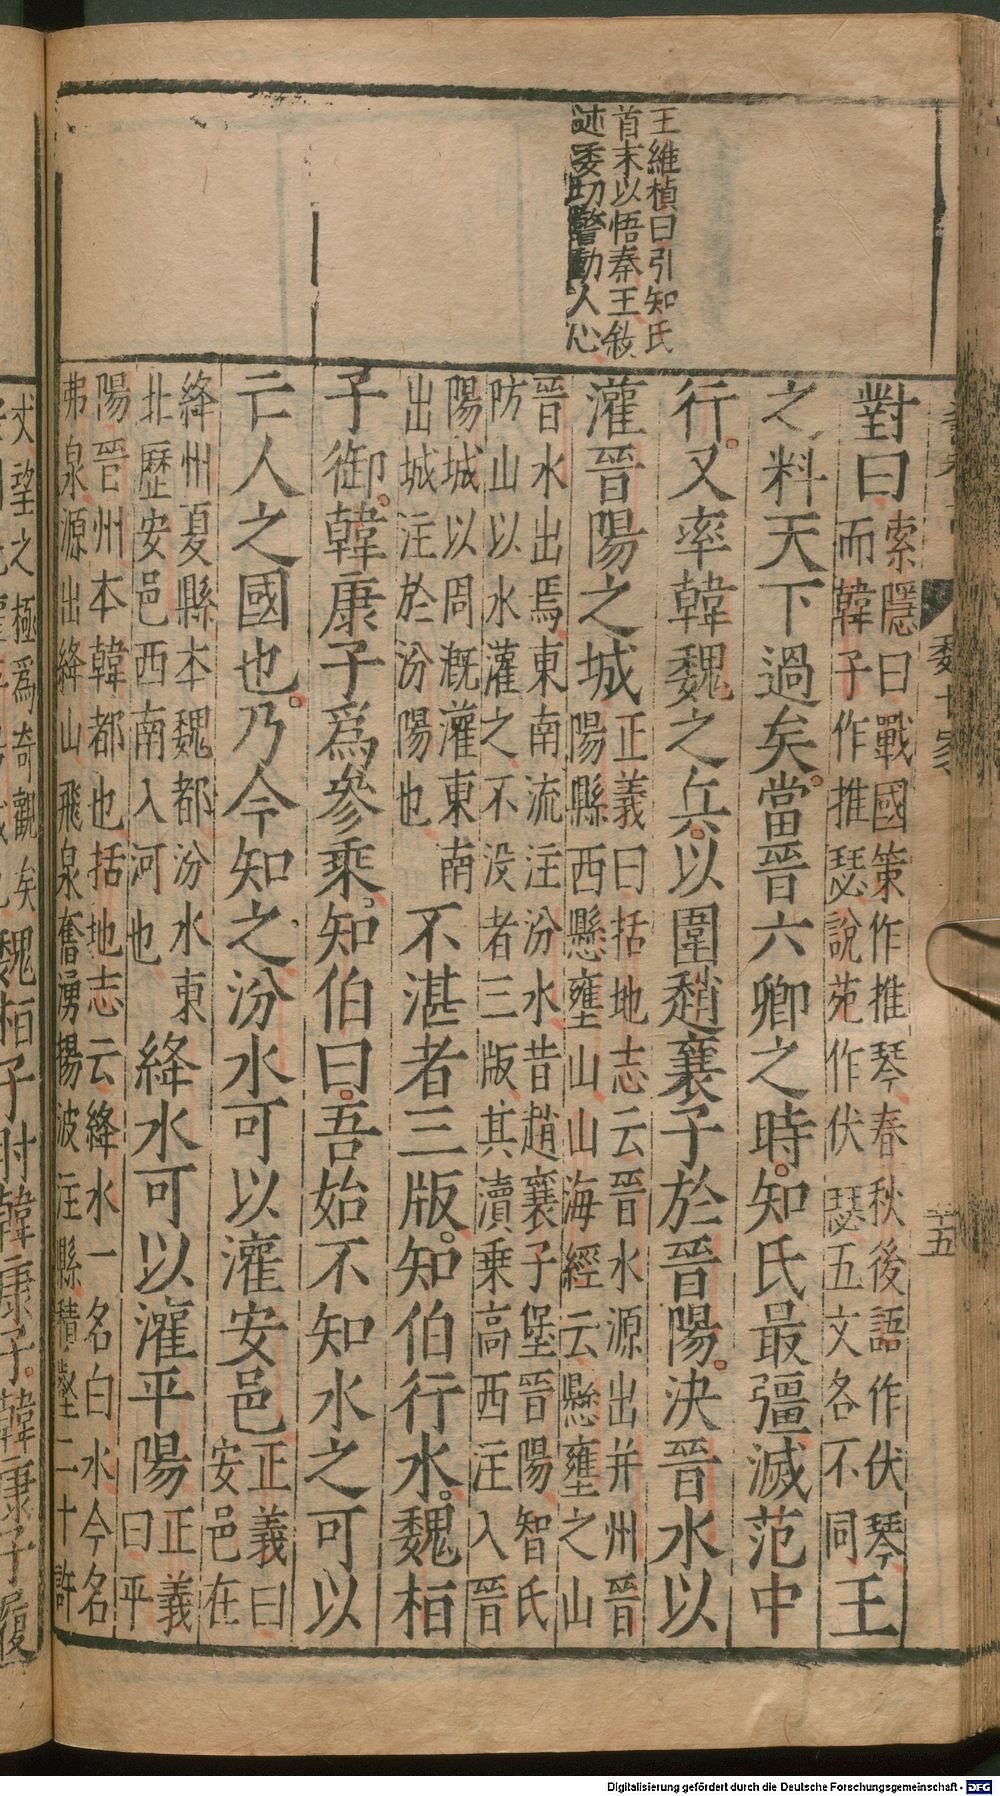 王維楨曰引知氏
首末以悟秦王敘
述委切警動人心
十五
對曰
索隱曰戰國策作推琴春秋後語作伏琴
而韓子作推瑟說苑作伏瑟五文各不同
王
之料天下過矣。當晉六卿之時。知氏最彊滅范中
行。又率韓魏之兵。以圍趙襄子於晉陽。決晉水以
灌晉陽之城
正義曰括地志云晉水源出并州晉
陽縣西懸壅山山海經云懸壅之山
晉水出焉東南流注汾水昔趙襄子堡晉陽智氏
防山以水灌之不没者三版其瀆乗高西注入晉
陽城以周溉灌東南
出城注於汾陽也
不湛者三版。知伯行水。魏桓
子御。韓康子爲參乗。知伯曰。吾始不知水之可以
亡人之國也。乃今知之。汾水可以灌安邑
正義曰
安邑在
絳州夏縣本魏都汾水東
北歷安邑西南入河也
絳水可以灌平陽
正義
曰平
陽晉州本韓都也括地志云絳水一名白水今名
弗泉源出絳山飛泉奮湧揚波注縣積壑二十許
丈望之極爲奇觀矣
魏桓子肘韓康子。韓康子履
Digitalisierung gefördert durch die Deutsche Forschungsgemeinschaft - DFG